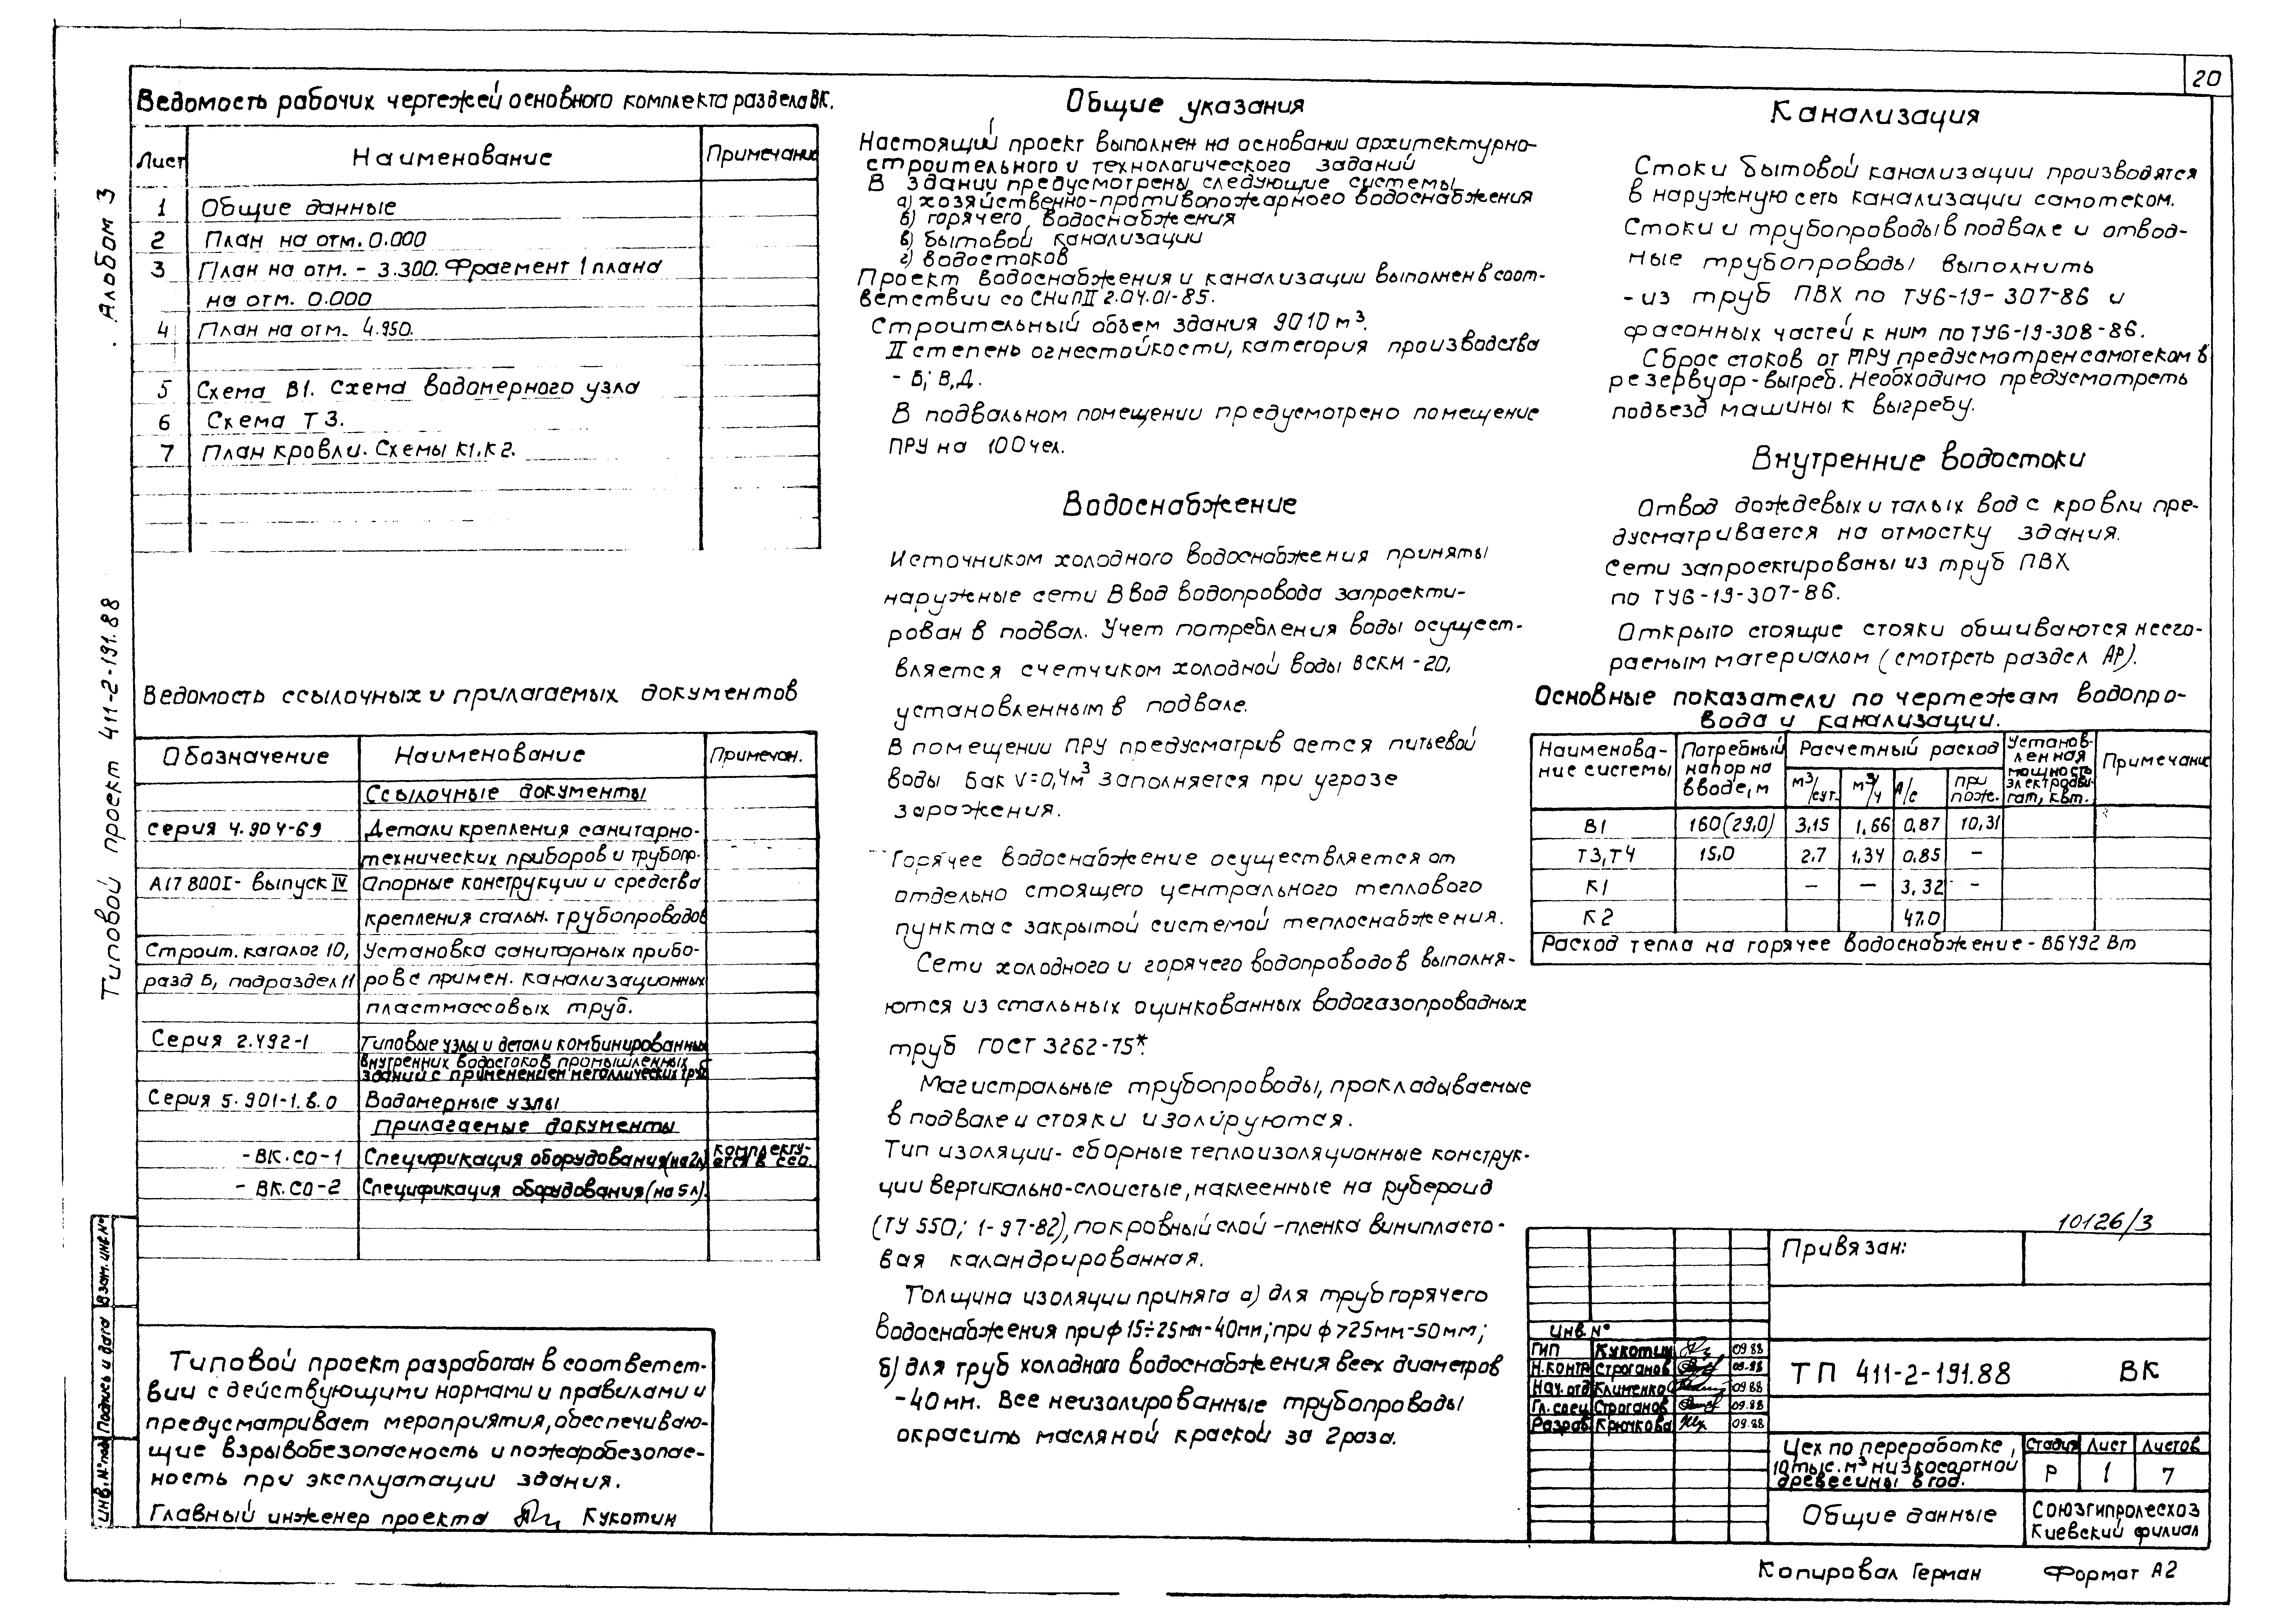 20
Альбом 3
Типовой проект 411-2-191.88
Ведомость рабочих чертежей основного комплекта раздела ВК.
Лист Наименование Примечание
1 Общие данные
2 План на отм. 0.000
3 План на отм. - 3.300. Фрагмент 1 плана
на отм. 0.000
4 План на отм. 4.950.
5 Схема В1. Схема водомерного узла
6 Схема Т3.
7 План кровли. Схемы К1, К2.
Ведомость ссылочных и прилагаемых документов
Обозначение Наименование Примечан.
Ссылочные документы
серия 4.904-69 Детали крепления санитарно-
технических приборов и трубопр.
А17 800I- выпуск IV Опорные конструкции и средства
крепления стальн. трубопроводов
Строит. каталог 10, Установка санитарных прибо-
разд Б, подраздел 11 ров с примен. канализационных
пластмассовых труб.
Серия 2.492-1 Типовые узлы и детали комбинированных
внутренних водостоков промышленных
зданий с применением металлических труб
Серия 5.901-1.в.0 Водомерные узлы
Прилагаемые документы
-ВК.СО-1 Спецификация оборудования (на 2л) комплекту-
ется в ССО.
- ВК.СО-2 Спецификация оборудования (на 5 л).
Типовой проект разработан в соответст-
вии с действующими нормами и правилами и
предусматривает мероприятия, обеспечиваю-
щие взрывобезопасность и пожаробезопас-
ность при эксплуатации здания.
Главный инженер проекта Кукотин
Инв. № подл Подпись и дата Взам. инв. №
Общие указания
Настоящий проект выполнен на основании архитектурно-
строительного и технологического заданий
В здании предусмотрены следующие системы
а) хозяйственно-противопожарного водоснабжения
б) горячего водоснабжения
в) бытовой канализации
г) водостоков
Проект водоснабжения и канализации выполнен в соот-
ветствии со СНиПII 2.04.01-85.
Строительный объем здания 9010 м³.
II степень огнестойкости, категория производства
- Б; В,Д.
В подвальном помещении предусмотрено помещение
ПРУ на 100 чел.
Водоснабжение
Источником холодного водоснабжения приняты
наружные сети Ввод водопровода запроекти-
рован в подвал. Учет потребления воды осущест-
вляется счетчиком холодной воды ВСКМ -20,
установленным в подвале.
В помещении ПРУ предусматривается питьевой
воды бак V=0,4м³ Заполняется при угрозе
заражения.
Горячее водоснабжение осуществляется от
отдельно стоящего центрального теплового
пункта с закрытой системой теплоснабжения.
Сети холодного и горячего водопроводов выполня-
ются из стальных оцинкованных водогазопроводных
труб ГОСТ 3262-75*.
Магистральные трубопроводы, прокладываемые
в подвале и стояки изолируются.
Тип изоляции- сборные теплоизоляционные конструк-
ции вертикально-слоистые, наклеенные на рубероид
(ТУ 550; 1-97-82), покровный слой -пленка винипласто-
вая каландрированная.
Толщина изоляции принята а) для труб горячего
водоснабжения при ф 15÷25мм-40мм; при ф >25мм-50мм;
б) для труб холодного водоснабжения всех диаметров
-40мм. Все неизолированные трубопроводы
окрасить масляной краской за 2 раза.
Канализация
Стоки бытовой канализации производятся
в наружную сеть канализации самотеком.
Стоки и трубопроводы в подвале и отвод-
ные трубопроводы выполнить
- из труб ПВХ по ТУ6-19-307-86 и
фасонных частей к ним по ТУ6-19-308-86.
Сброс стоков от ПРУ предусмотрен самотеком в
резервуар-выгреб. Необходимо предусмотреть
подъезд машины к выгребу.
Внутренние водостоки
Отвод дождевых и талых вод с кровли пре-
дусматривается на отмостку здания.
Сети запроектированы из труб ПВХ
по ТУ6-19-307-86.
Открыто стоящие стояки обшиваются несго-
раемым материалом (смотреть раздел АР).
Основные показатели по чертежам водопро-
вода и канализации.
Наименова-ние системы Потребный напор на вводе, м Расчетный расход Установ-ленная мощность электродви-гат, квт. Примечание
м³/сут. м³/ч л/с при пож.
В1 160(29,0) 3,15 1,66 0,87 10,31
Т3,Т4 15,0 2.7 1,34 0,85 -
К1 - - 3,32 -
К2 47.0
Расход тепла на горячее водоснабжение - 86492 Вт
10126/3
Привязан:
Инв. №
ГИП Кукотин 09.88
Н.контр Строганов 09.88
Нач. отд Клименко 09.88
Гл. спец Строганов 09.88
Разраб. Крючкова 09.88
ТП 411-2-191.88 ВК
Цех по переработке,
10 тыс. м³ низкосортной
древесины в год.
Стадия Лист Листов
Р 1 7
Общие данные
Союзгипролесхоз
Киевский филиал
Копировал Герман Формат А2